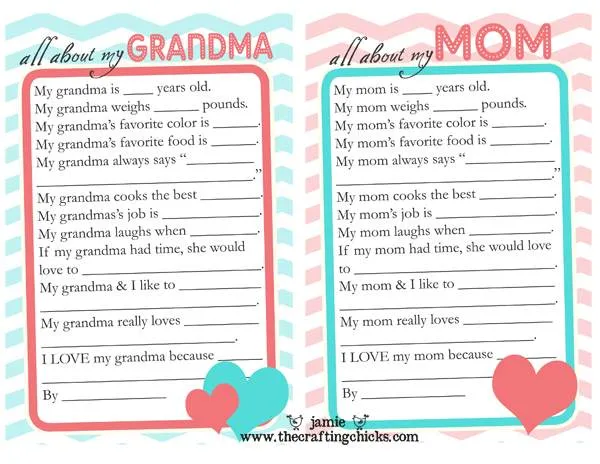 all about my GRANDMA
My grandma is ____ years old.
My grandma weighs ______ pounds.
My grandma's favorite color is ______.
My grandma's favorite food is ______.
My grandma always says "____________
____________________________."
My grandma cooks the best ________
My grandmas's job is ____________.
My grandma laughs when __________.
If my grandma had time, she would
love to ________________________.
My grandma & I like to ____________
____________________________.
My grandma really loves ____________
_________________________.
I LOVE my grandma because ______
By ______________
all about my MOM
My mom is ____ years old.
My mom weighs ______ pounds.
My mom's favorite color is _______.
My mom's favorite food is _______.
My mom always says "____________
____________________________."
My mom cooks the best __________
My mom's job is ______________.
My mom laughs when ____________.
If my mom had time, she would love
to __________________________.
My mom & I like to ______________
____________________________.
My mom really loves ______________
_________________________.
I LOVE my mom because ________
By ______________
jamie
www.thecraftingchicks.com